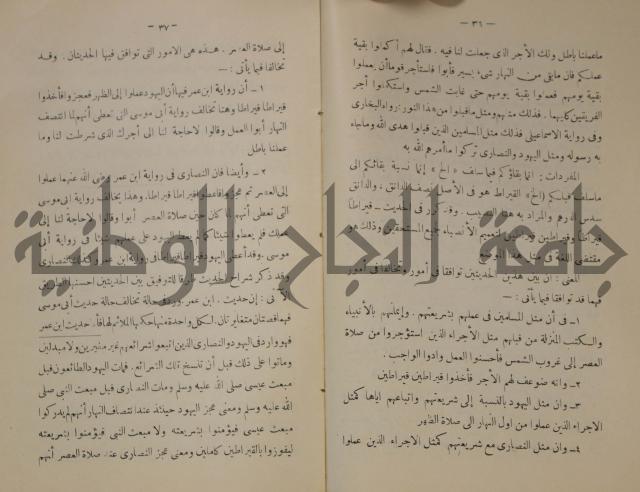 — ٣٦ —
ما عملنا باطل ولك الأجر الذي جعلت لنا فيه . فقال لهم أكملوا بقية
عملكم فان ما بقى من النهار شىء يسير فأبوا فاستأجر قوما أن يعملوا
بقية يومهم فعملوا بقية يومهم حتى غابت الشمس واستكملوا أجر
الفريقين كليهما . فذلك مثلهم ومثل ما قبلوا من هذا النور : رواه البخارى
وفى رواية الاسماعيلى فذلك مثل المسلمين الذين قبلوا هدى الله وما جاء
به رسوله ومثل اليهود والنصارى تركوا ما أمرهم الله به
المفردات : إنما بقاؤكم فيما سلف « الخ » إنما نسبة بقائكم الى
ماسلف قبلكم (الخ) القيراط هو فى الأصل نصف الدانق ، والدانق
سدس الدرهم والمراد به هنا النصيب . وقد كرر فى الحديث – قيراطا
قيراطا وقيراطين قيراطين لتعميم الأنصباء جميع المستحقين وذلك هو
مقتضى اللغة فى مثل هذا الموضع
المعنى : ان بين هذين الحديثين توافقا فى أمور وتخالفا فى أمور
فيما قد توافقا فيما يأتى : —
١ – فى أن مثل المسلمين فى عملهم بشريعتهم . وإيمانهم بالأنبياء
والكتب المنزلة من قبلهم مثل الأجراء الذين استؤجروا من صلاة
العصر إلى غروب الشمس فأحسنوا العمل وادوا الواجب .
٢ – وانه ضوعف لهم الأجر فأخذوا قيراطين قيراطين
٣ – وان مثل اليهود بالنسبة إلى شريعتهم واتباعهم اياها كمثل
الاجراء الذين عملوا من اول النهار الى صلاة الظهر
٤ – وان مثل النصارى مع شريعتهم كمثل الاجراء الذين عملوا
— ٣٧ —
إلى صلاة العصر . هذه هى الامور التى توافق فيها الحديثان . وقد
تخالفا فيما يأتى : —
١ – أن رواية ابن عمر فيها أن اليهود عملوا إلى الظهر فعجزوا فأخذوا
قيراطا قيراطا وهنا تخالف رواية أبى موسى التى تعطى أنهم لما انتصف
النهار أبوا العمل وقالوا لا حاجة لنا الى أجرك الذى شرطت لنا وما
عملنا باطل
٢ – وأيضا فان النصارى فى رواية ابن عمر رضى الله عنهما عملوا
إلى العصر ثم عجزوا فأعطوا قيراطا قيراطا . وهذا يخالف رواية ابى موسى
التى تعطى أنهم لما كان حين صلاة العصر أبوا وقالوا لا حاجة لنا إلى
عملك فلم يعطوا شيئا كما لم يعط اليهود على عملهم شيئا فى رواية أبى
موسى . وقد أعطى اليهود قيراطا قيراطا فى رواية ابن عمر وكذلك النصارى
وقد ذكر شراح الحديث طرقا للتوفيق بين الحديثين احسنها الطريق
الآتى : إن حديث . ابن عمر . ورد فى حالة تخالف حالة حديث أبى موسى
فهما قصتان متغايرتان . لكل واحدة منهما حكمها الملائم لها فأ. حديث ابن عمر
فهو وارد فى اليهود والنصارى الذين اتبعوا شرائعهم غير مغيرين ولا مبدلين
وماتوا على ذلك قبل أن تنسخ تلك الشرائع . فمات اليهود الطائعون قبل
مبعث عيسى صلى الله عليه وسلم ومات النصارى قبل مبعث النبى صلى
الله عليه وسلم ومعنى عجز اليهود حينئذ عند انتصاف النهار أنهم لم يدركوا
مبعث عيسى فيؤمنوا بشريعته ولا مبعث النبى فيؤمنوا بشريعته
ليفوزوا بالقيراطين كاملين ومعنى عجز النصارى عند صلاة العصر أنهم
جامعة النجاح الوطنية